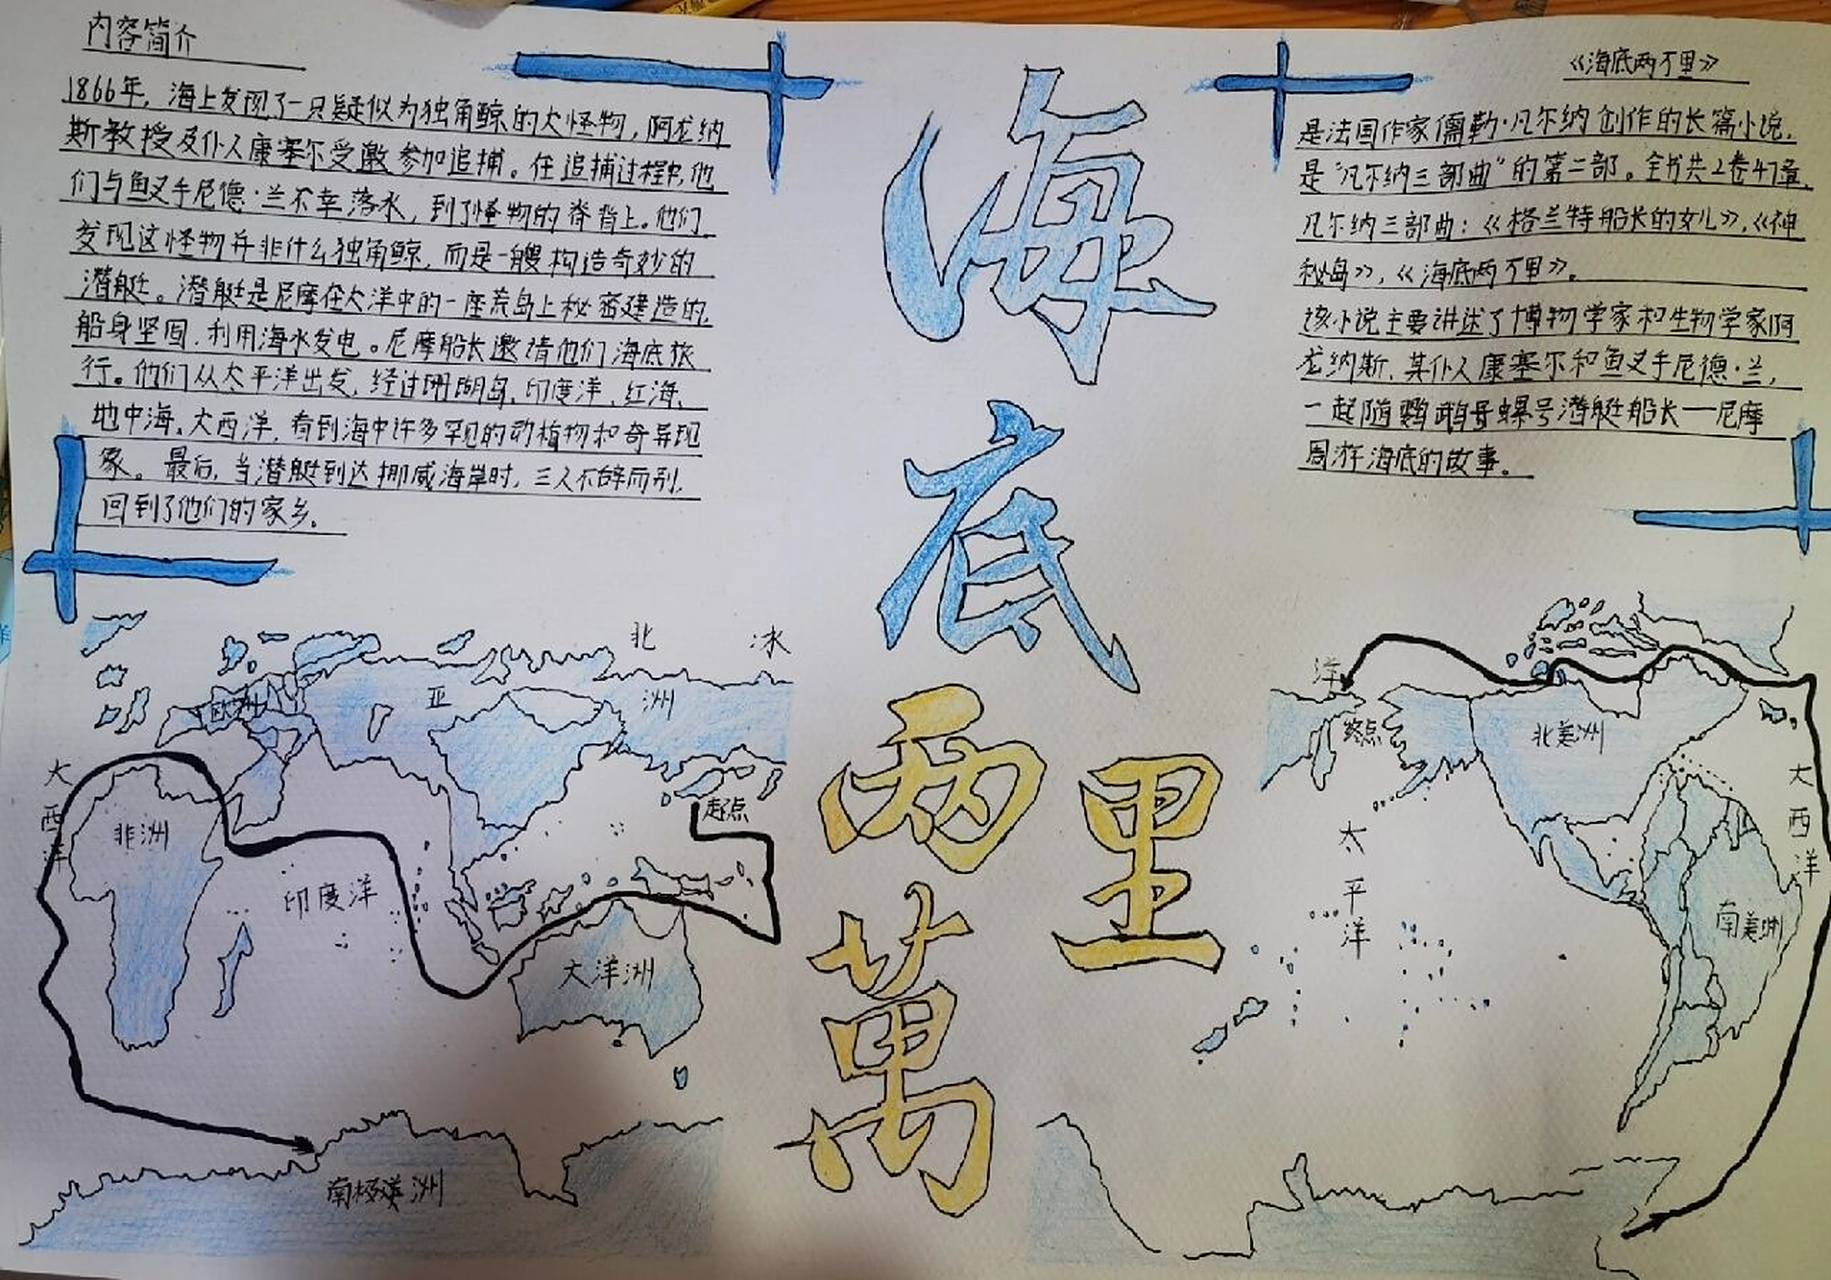 内容简介
1866年，海上发现了一只疑似为独角鲸的大怪物，阿龙纳
斯教授及仆人康塞尔受邀参加追捕。在追捕过程中，他
们与鱼叉手尼德·兰不幸落水，到了怪物的脊背上。他们
发现这怪物并非什么独角鲸，而是一艘构造奇妙的
潜艇。潜艇是尼摩在大洋中的一座荒岛上秘密建造的，
船身坚固，利用海水发电。尼摩船长邀请他们海底旅
行。他们从太平洋出发，经过珊瑚岛，印度洋，红海，
地中海，大西洋，看到海中许多罕见的动植物和奇异现
象。最后，当潜艇到达挪威海岸时，三人不辞而别，
回到了他们的家乡。
海底
两萬
里
《海底两万里》
是法国作家儒勒·凡尔纳创作的长篇小说，
是“凡尔纳三部曲”的第二部。全书共2卷47章，
凡尔纳三部曲：《格兰特船长的女儿》，《神
秘岛》，《海底两万里》。
该小说主要讲述了博物学家和生物学家阿
龙纳斯，其仆人康塞尔和鱼叉手尼德·兰，
一起随鹦鹉号螺号潜艇船长——尼摩
周游海底的故事。
北 冰
洋
欧洲
亚 洲
大西洋
非洲
印度洋
起点
大洋洲
南极洲
终点
北美洲
太平洋
大西洋
南美洲